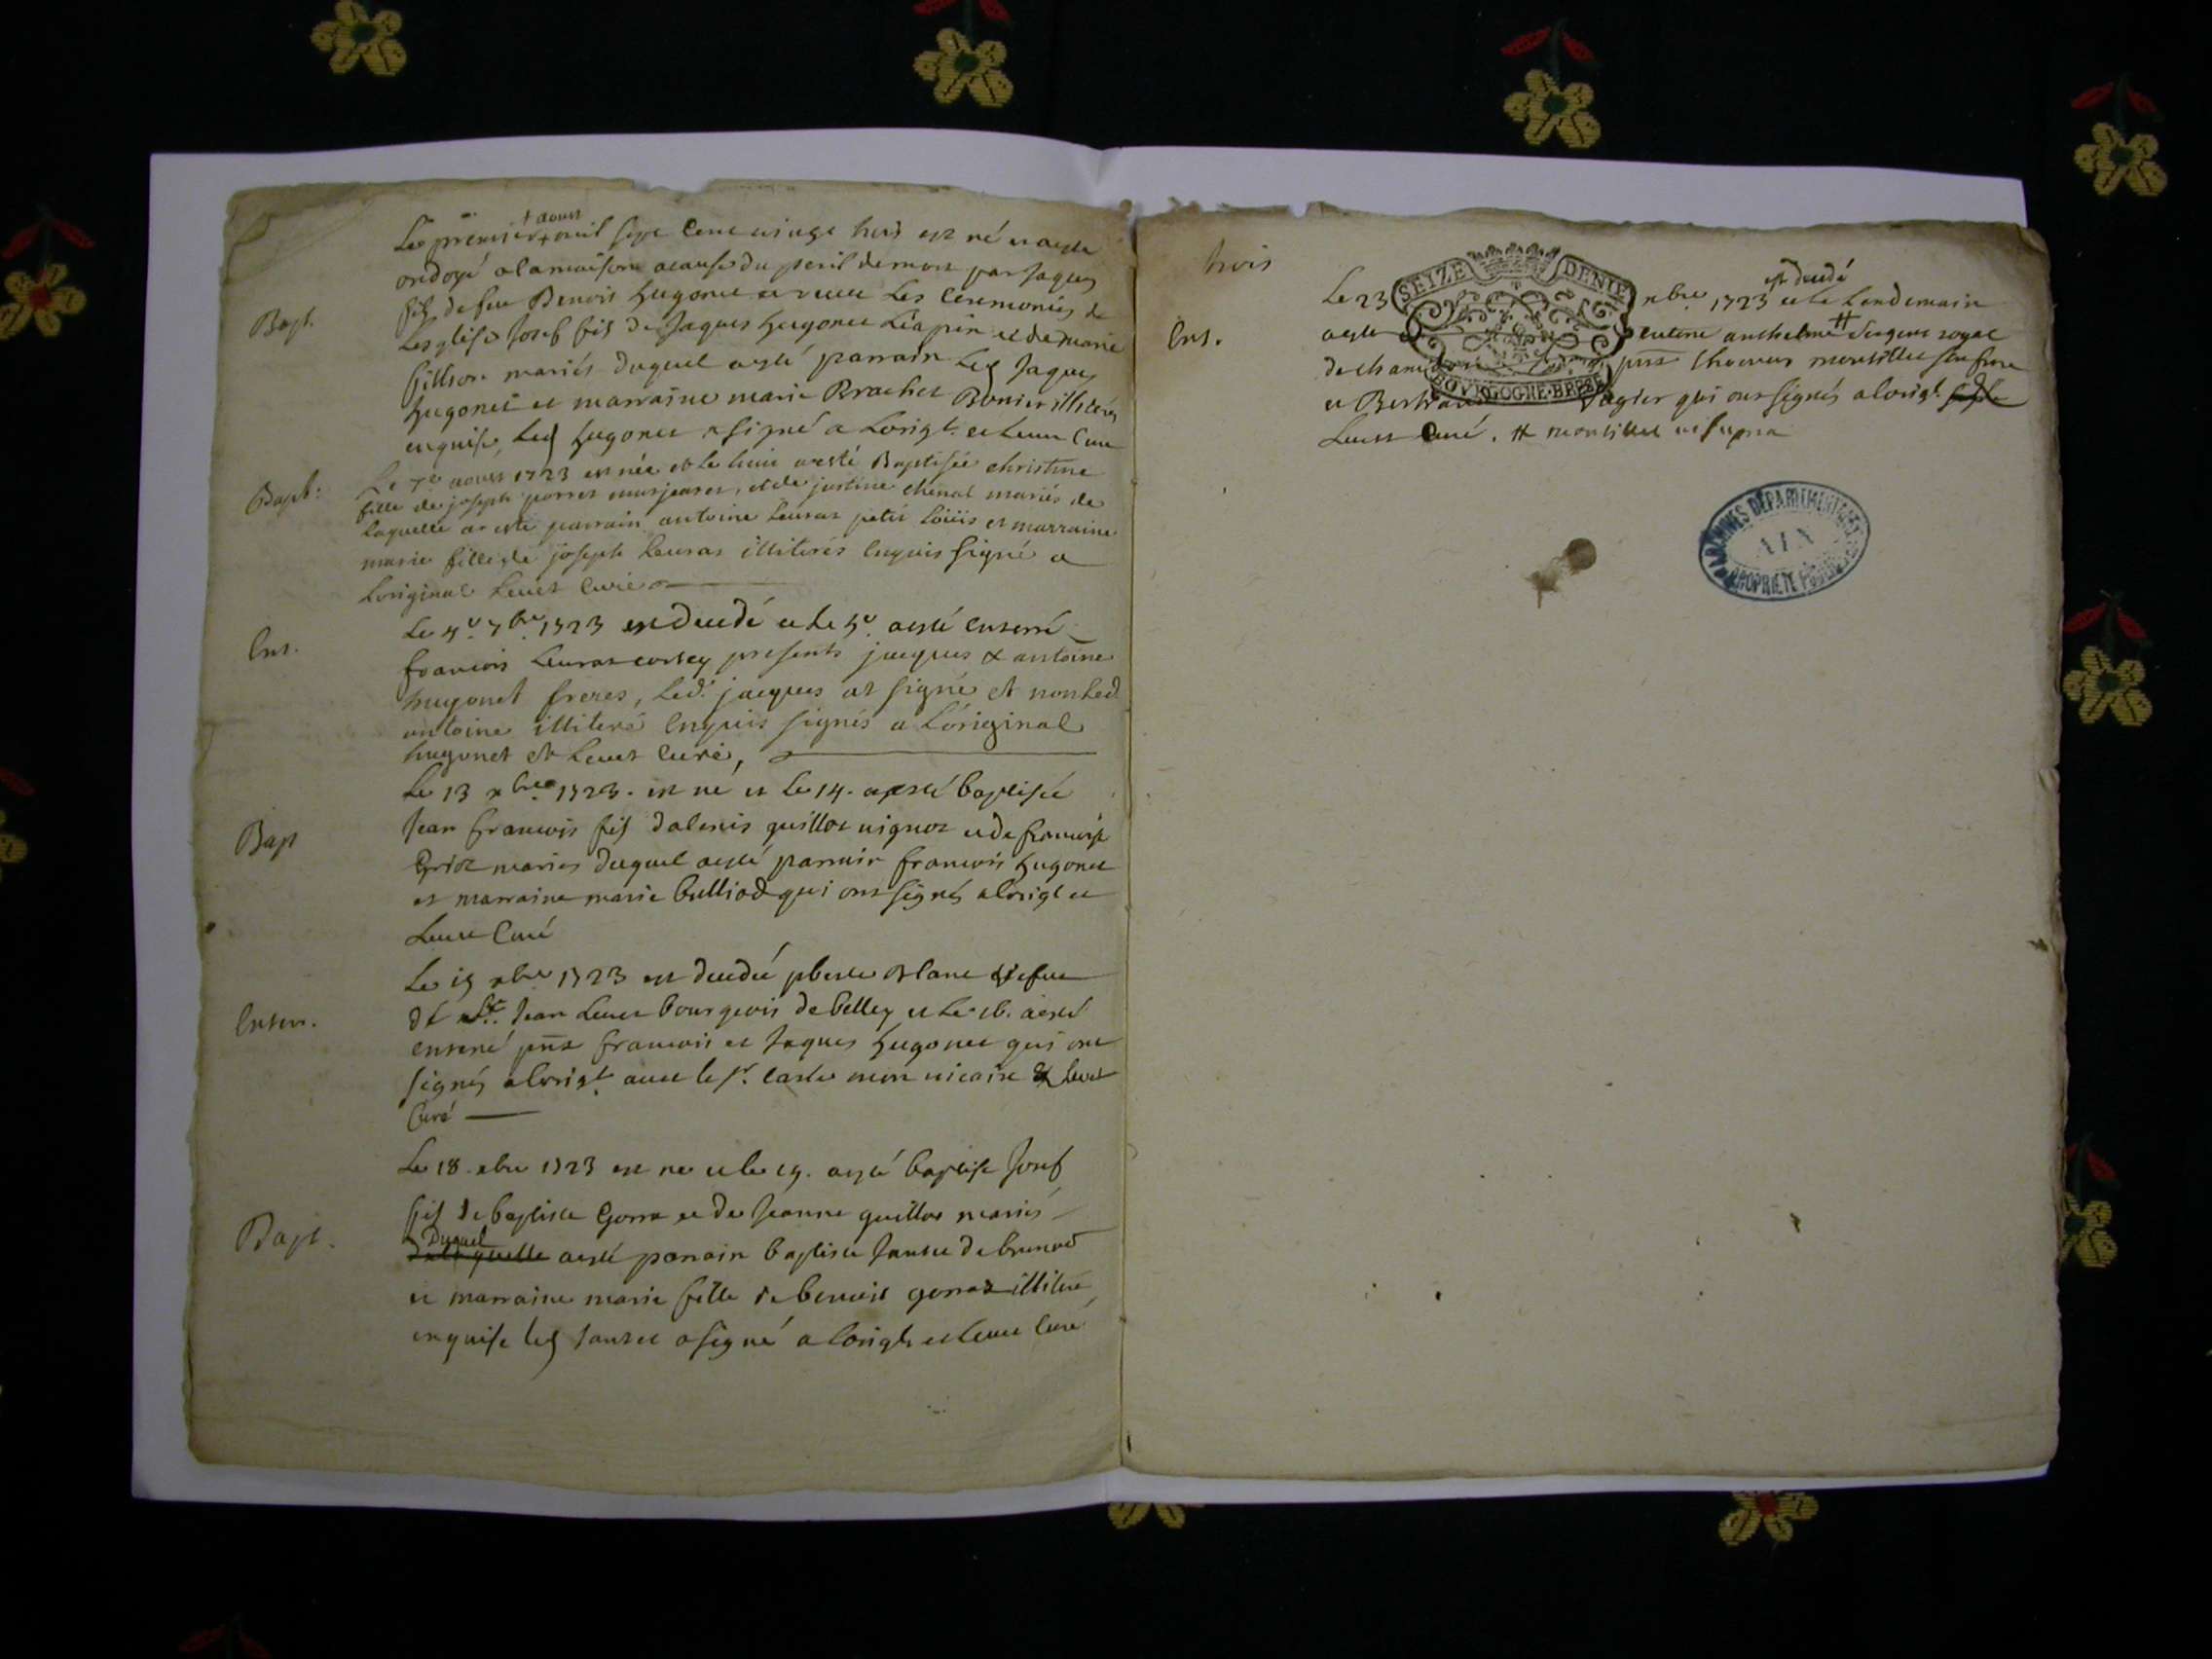 Bapt.
Le premier + aoust mil sept cent vingt trois est né et a esté
ondoyé a la maison a cause du peril de mort par Jaques
fils de feu Benoit hugonet et receu Les Ceremonies de
Lesglise Josef fils de Jaques hugonet Liapin et de marie
Gillion mariés duquel a esté parrain Led Jaques
hugonet et marraine marie Brachet illiterés
enquise, Led hugonet a signé a Lorigl. et Leuet Curé
Bapt:
Le 7e aoust 1723 est née et le huit at esté Baptisée christine
fille de joseph porret, et de justine chenal mariés de
laquelle at esté parrain antoine Leuras petit Loüis et marraine
marie fille de joseph Leuras illiterés enquis signé a
Loriginal Leuet Curé
Ent.
Le 4e. 7bre. 1723 est decedé et le 5e. a esté enterré
francois Leuras presents jacques & antoine
hugonet freres, Led. jacques at signé et non Led.
antoine illiteré enquis signés a Loriginal
hugonet et Leuet Curé,
Bap
Le 13 xbre 1723. est né et Le 14. a esté baptisée
Jean francois fils dalexis guillot uignot et de francoise
mariés duquel a esté parrain francois hugonet
et marraine marie bulliod qui ont signés a lorigl et
Leuet Curé
Enterr.
Le 15 xbre 1723 est decedé Blanc
de Jean Leuet bourgeois de belley et Le 16. a esté
enterré pnts francois et Jaques hugonet qui ont
signés a lorigl. auec le sr. mon uicaire & Leuet
Curé
Bapt.
Le 18. xbre 1723 est né et le 19. a esté baptisé Josef
fils de baptiste Gorra et de Jeanne guillot mariés
Duquel a esté parrain baptiste Jantet de
et marraine marie fille de benoist gorraz illiterée
enquise led Jantet a signé a lorigl et Leuet Curé
trois
SEIZE DENIE
BOVRGOGNE·BRESSE
Ent.
Le 23 xbre 1723 est decedé et le Lendemain
a esté enterré anthelme # sergent royal
de pnts thomas montillet son frere
et Bertrand ougier qui ont signés a lorigl.
Leuet Curé. # montillet ut supra
ARCHIVES DÉPARTEMENTALES
AIN
PROPRIÉTÉ PUBLIQUE